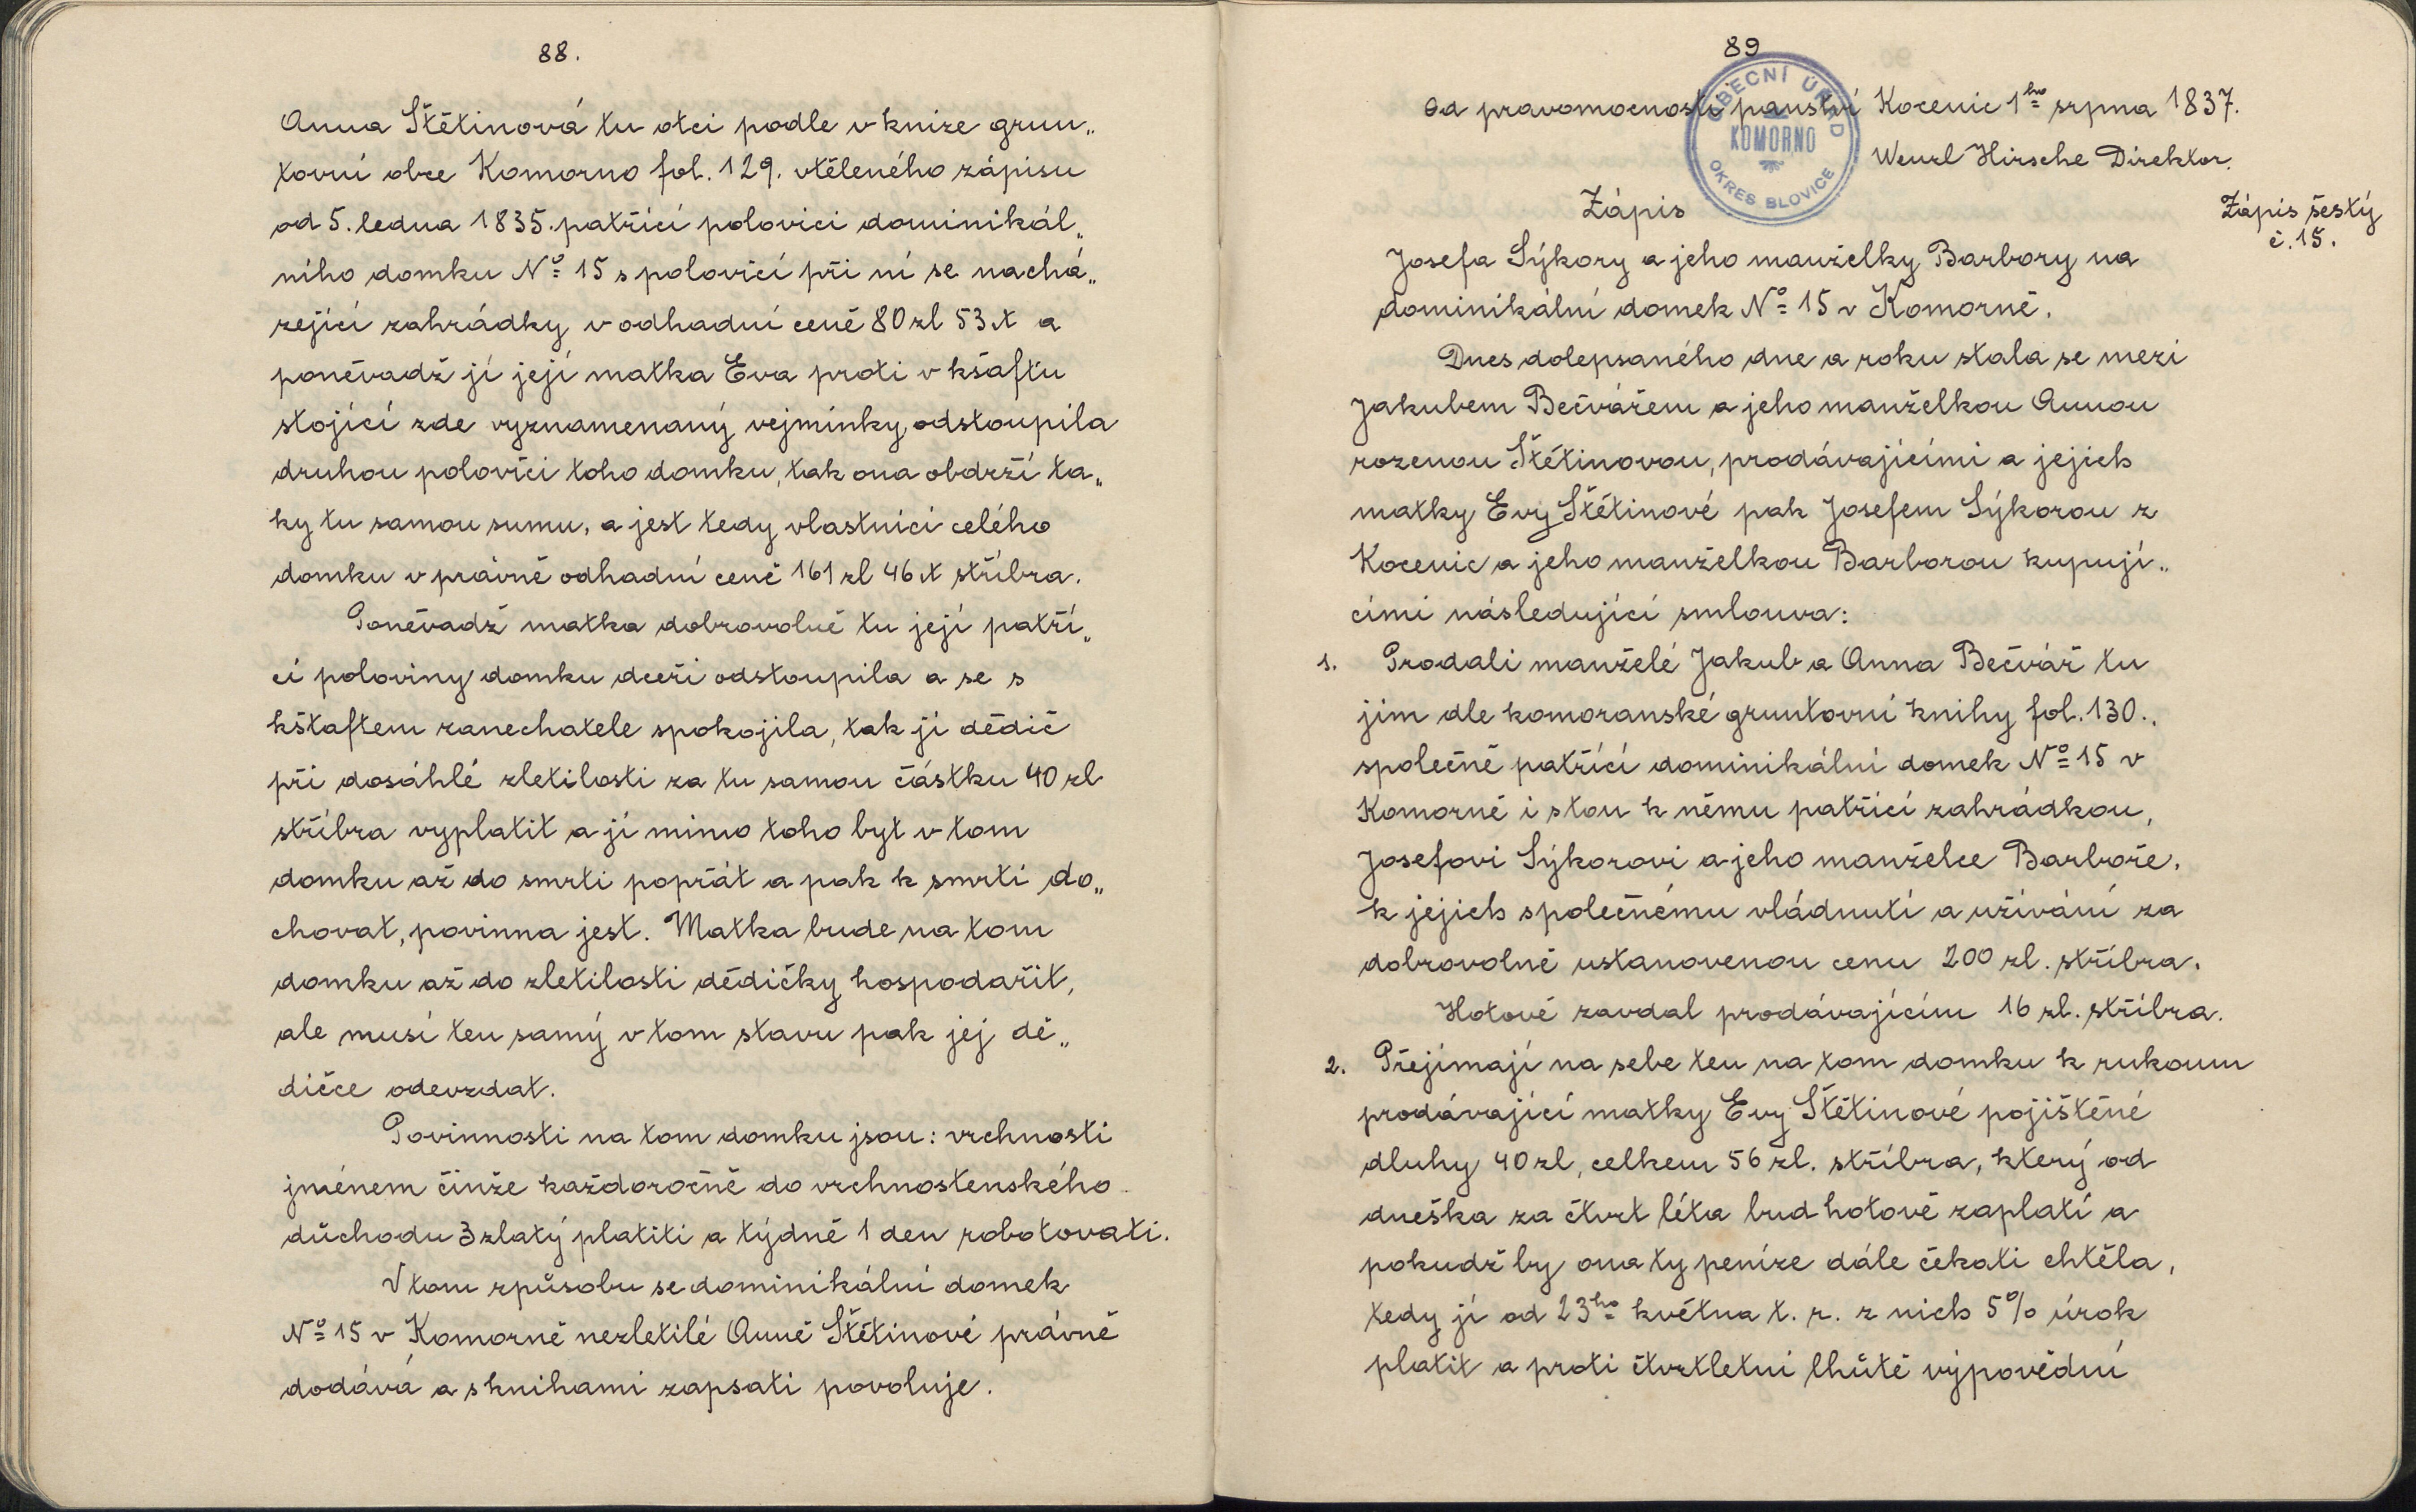 88.
Anna Štětinová tu otci podle v knize grun„
tovní obce Komorno fol. 129. vtěleného zápisu
od 5. ledna 1835. patřící polovici dominikál„
ního domku No 15 s polovicí při ní se nachá„
zející zahrádky v odhadní ceně 80 zl 53 x a
poněvadž jí její matka Eva proti v kšaftu
stojící zde vyznamenaný vejmínky odstoupila
druhou polovici toho domku, tak ona obdrží ta„
ky tu samou sumu, a jest tedy vlastnicí celého
domku v právně odhadní ceně 161 zl 46 x stříbra.
Poněvadž matka dobrovolně tu její patří„
cí poloviny domku dceři odstoupila a se s
kštaftem zanechatele spokojila, tak jí dědič
při dosáhlé zletilosti za tu samou částku 40 zl
stříbra vyplatit a jí mimo toho byt v tom
domku až do smrti popřát a pak k smrti do„
chovat, povinna jest. Matka bude na tom
domku až do zletilosti dědičky hospodařit,
ale musí ten samý v tom stavu pak jej dě„
dičce odevzdat.
Povinnosti na tom domku jsou: vrchnosti
jménem činže každoročně do vrchnostenského
důchodu 3 zlatý platiti a týdně 1 den robotovati.
V tom způsobu se dominikální domek
No 15 v Komorně nezletilé Anně Štětinové právně
dodává a s knihami zapsati povoluje.
89
Od pravomocnosti panství Kocenic 1ho srpna 1837.
Wenzl Hirsche Direktor.
OBECNÍ ÚŘAD
KOMORNO
OKRES BLOVICE
Zápis
Zápis šestý
č. 15.
Josefa Sýkory a jeho manželky Barbory na
dominikální domek No 15 v Komorně.
Dnes dolepsaného dne a roku stala se mezi
Jakubem Bečvářem a jeho manželkou Annou
rozenou Štětinovou, prodávajícími a jejich
matky Evy Štětinové pak Josefem Sýkorou z
Kocenic a jeho manželkou Barborou kupují„
cími následující smlouva:
1. Prodali manželé Jakub a Anna Bečvář tu
jim dle komoranské gruntovní knihy fol. 130.,
společně patřící dominikální domek No 15 v
Komorně i s tou k němu patřící zahrádkou,
Josefovi Sýkorovi a jeho manželce Barboře,
k jejich společnému vládnutí a užívání za
dobrovolně ustanovenou cenu 200 zl. stříbra.
Hotově zavdal prodávajícím 16 zl. stříbra.
2. Přejímají na sebe ten na tom domku k rukoum
prodávající matky Evy Štětinové pojištěné
dluhy 40 zl, celkem 56 zl. stříbra, který od
dneška za čtvrt léta bud hotově zaplatí a
pokudž by ona ty peníze dále čekati chtěla,
tedy jí od 23ho května t. r. z nich 5% úrok
platit a proti čtvrtletní lhůtě výpovědní